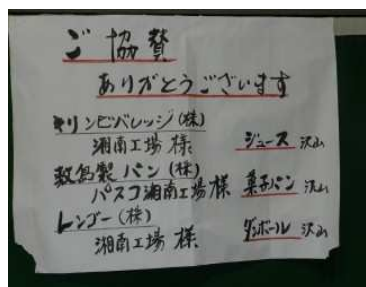 ご協賛
ありがとうございます
キリンビバレッジ(株)
湘南工場様 ジュース 沢山
敷島製パン(株)
パスコ湘南工場様 菓子パン 沢山
レンゴー(株)
湘南工場様 ダンボール 沢山